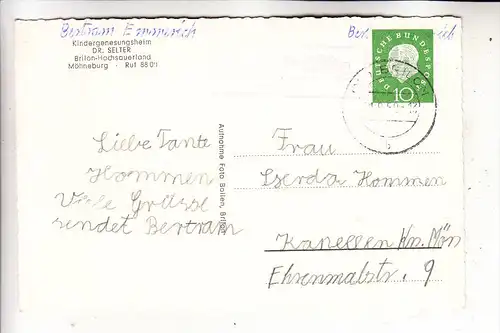 Bertram Emmerich
Kindergenesungsheim
DR. SELTER
Brilon-Hochsauerland
Möhneburg · Ruf 8801
Liebe Tante
Hommen
Viele Grüsse
sendet Bertram
Aufnahme Foto Bollen, Brilon
DEUTSCHE BUNDESPOST
10
Frau
Gerda Hommen
Kapellen Krs. Mörs
Ehrenmalstr. 9